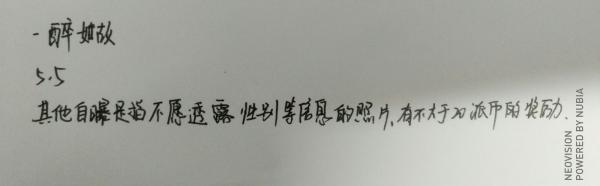 -醉如故
5.5
其他自曝是指不愿透露性别等信息的照片,有不大于20派币的奖励.
NEOVISION
POWERED BY NUBIA